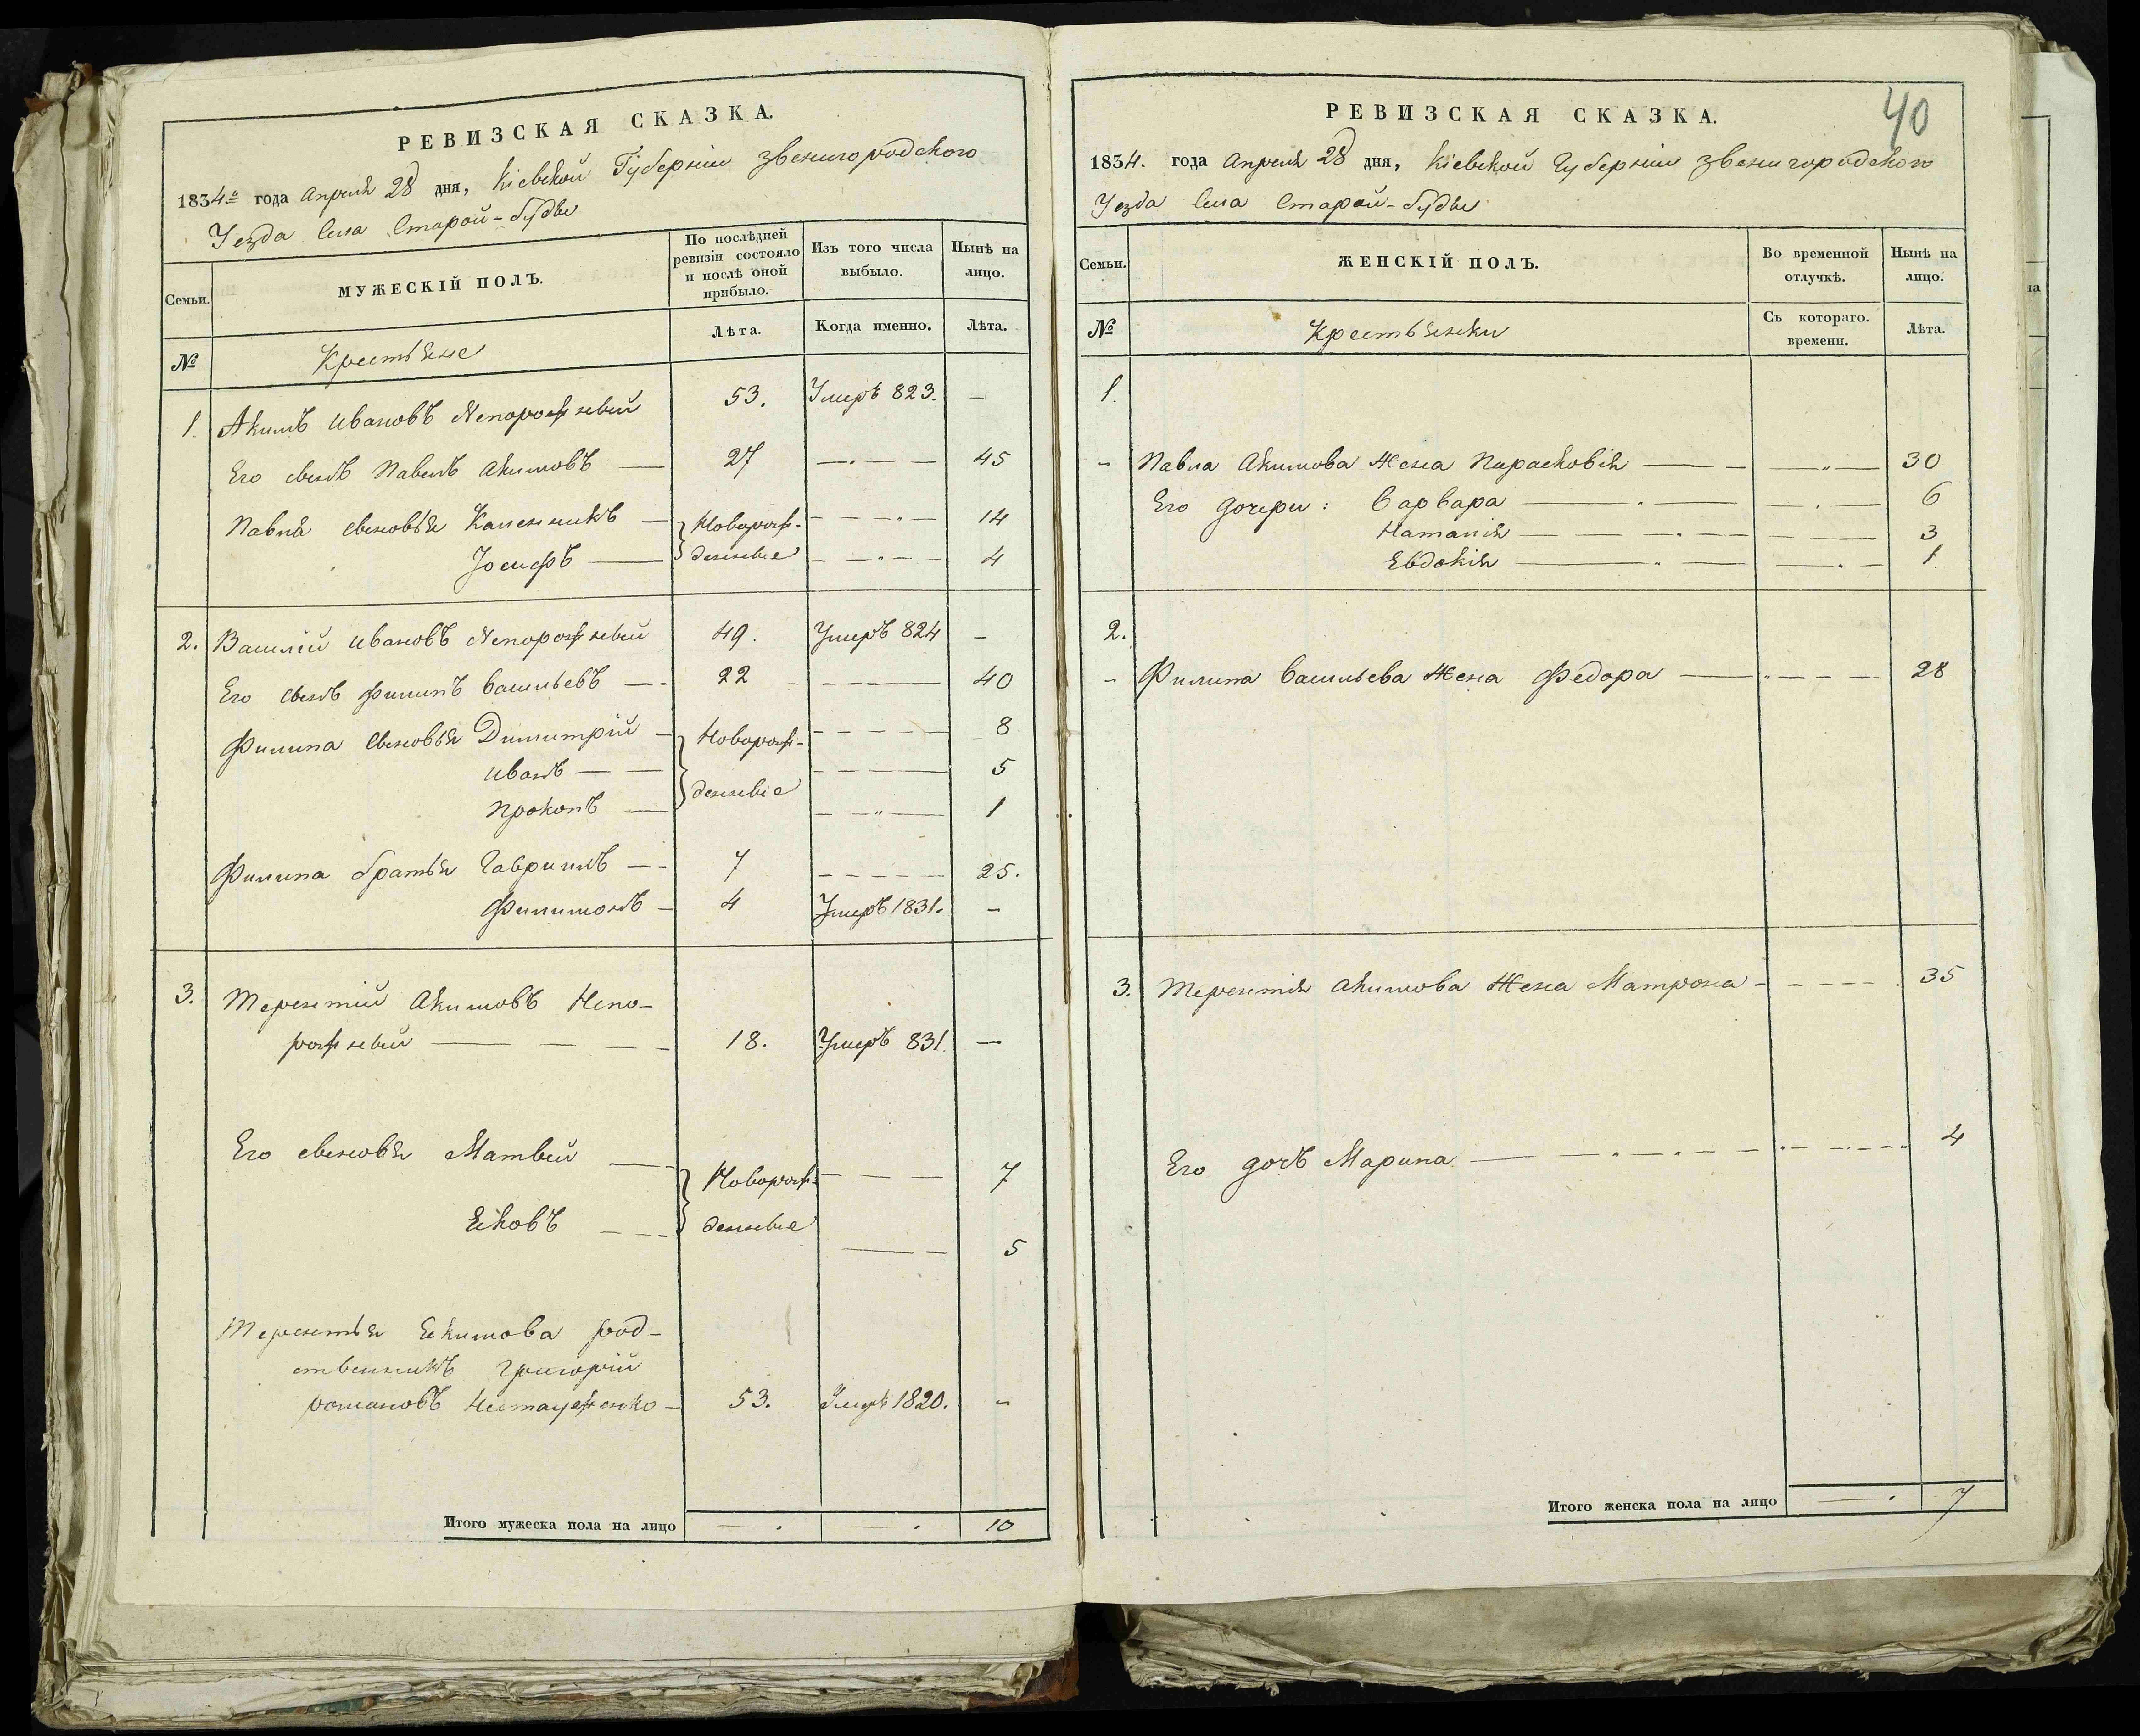 РЕВИЗСКАЯ СКАЗКА.
1834го года Апреля 28 дня, Кіевской Губерніи Звенигородского
Уезда Села Старой-Буды
Семьи. МУЖЕСКІЙ ПОЛЪ. По послѣдней ревизіи состояло и послѣ оной прибыло. Изъ того числа выбыло. Нынѣ на лицо.
№ Крестьяне Лѣта. Когда именно. Лѣта.
1. Акимъ Ивановъ Непорожный 53. Умеръ 823. —
Его сынъ Павелъ Акимовъ — 27 — 45
Павла сыновья Калениикъ — Новорож- — 14
Іосифъ — денные — 4
2. Василій Ивановъ Непорожный 49. Умеръ 824 —
Его сынъ Филипъ Васильевъ — 22 — 40
Филипа сыновья Димитрій — Новорож- — 8
Иванъ — — 5
денные
Прокопъ — — 1
Филипа братья Гавриилъ — 7 — 25.
Филимонъ — 4 Умеръ 1831. —
3. Терентій Акимовъ Непо-
рожный — 18. Умеръ 831. —
Его сыновья Матвей — Новорож- — 7
Яковъ — денные — 5
Терентья Якимова род-
ственникъ Григорій
Романовъ 53. Умеръ 1820. —
Итого мужеска пола на лицо — — 10
40
РЕВИЗСКАЯ СКАЗКА.
1834. года Апреля 28 дня, Кіевской Губерніи Звенигородского
Уезда Села Старой-Буды
Семьи. ЖЕНСКІЙ ПОЛЪ. Во временной отлучкѣ. Нынѣ на лицо.
№ Крестьянки Съ котораго. времени. Лѣта.
1.
- Павла Акимова Жена Парасковія — — 30
Его дочери: Варвара — — 6
Наталія — — 3
Евдокія — — 1
2.
- Филипа Васильева Жена Федора — — 28
3. Терентія Акимова Жена Матрона — 35
Его дочъ Марина — — 4
Итого женска пола на лицо — 7